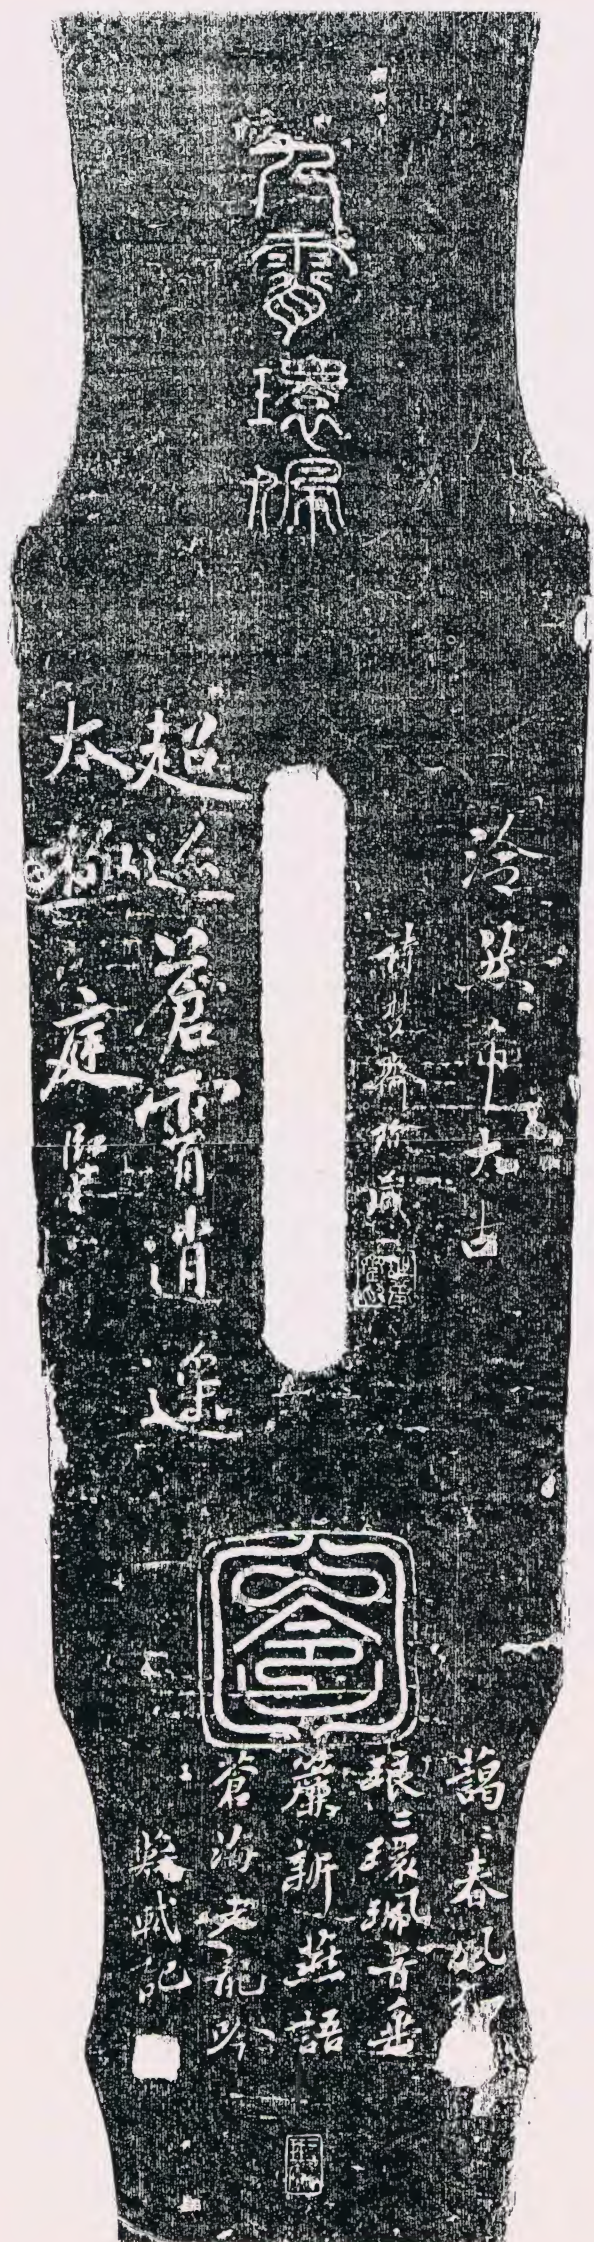 九霄環佩
泠然希太古
詩夢齋珍藏
超迹蒼霄逍遙
太極庭堅
包含
藹〻春風細
琅〻環珮音垂
簾新燕語
蒼海老龍吟
蘇軾記